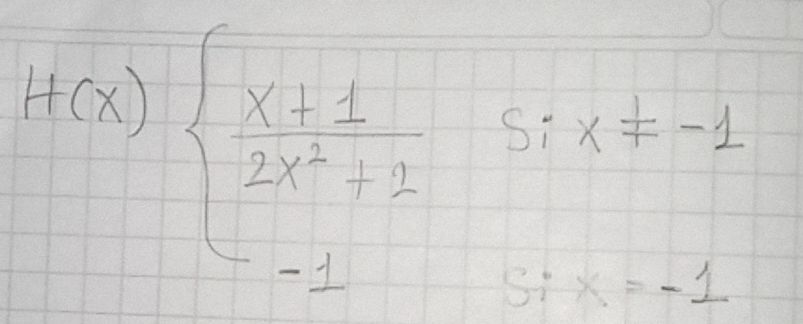 H(x) { x + 1 / 2x² + 2 Si x ≠ -1
-1 Si x = -1